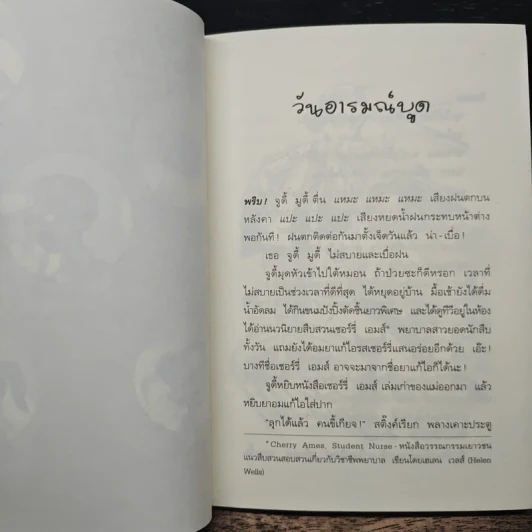 วันอารมณ์บูด
พริบ! จูดี้ มูดี้ ตื่น แหมะ แหมะ แหมะ เสียงฝนตกบน
หลังคา แปะ แปะ แปะ เสียงหยดน้ำฝนกระทบหน้าต่าง
พอกันที! ฝนตกติดต่อกันมาตั้งเจ็ดวันแล้ว น่า-เบื่อ!
เธอ จูดี้ มูดี้ ไม่สบายและเบื่อฝน
จูดี้มุดหัวเข้าไปใต้หมอน ถ้าป่วยซะก็ดีหรอก เวลาที่
ไม่สบายเป็นช่วงเวลาที่ดีที่สุด ได้หยุดอยู่บ้าน มื้อเช้ายังได้ดื่ม
น้ำอัดลม ได้กินขนมปังปิ้งตัดชิ้นยาวพิเศษ และได้ดูทีวีอยู่ในห้อง
ได้อ่านนวนิยายสืบสวนเชอร์รี่ เอมส์* พยาบาลสาวยอดนักสืบ
ทั้งวัน แถมยังได้อมยาแก้ไอรสเชอร์รี่แสนอร่อยอีกด้วย เอ๊ะ!
บางทีชื่อเชอร์รี่ เอมส์ อาจจะมาจากชื่อยาแก้ไอก็ได้นะ!
จูดี้หยิบหนังสือเชอร์รี่ เอมส์ เล่มเก่าของแม่ออกมา แล้ว
หยิบยาอมแก้ไอใส่ปาก
"ลุกได้แล้ว คนขี้เกียจ!" สติ๊งค์เรียก พลางเคาะประตู
* Cherry Ames, Student Nurse - หนังสือวรรณกรรมเยาวชน
แนวสืบสวนสอบสวนเกี่ยวกับวิชาชีพพยาบาล เขียนโดยเฮเลน เวลส์ (Helen
Wells)